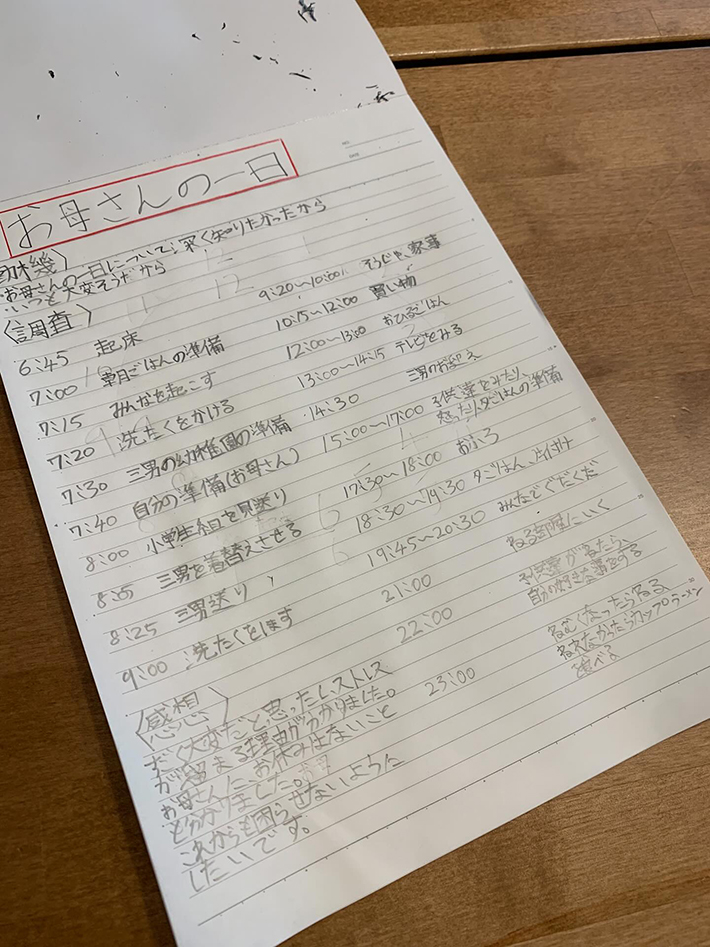 お母さんの一日
〈動機〉
・お母さんの一日について深く知りたかったから
・いつも大変そうだから
〈調査〉
6:45 起床
7:00 朝ごはんの準備
7:15 みんなを起こす
7:20 洗たくをかける
7:30 三男の幼稚園の準備
7:40 自分の準備(お母さん)
8:00 小学生組を見送り
8:05 三男を着替えさせる
8:25 三男送り
9:00 洗たくをほす
9:20〜10:00 そうじや、家事
10:15〜12:00 買い物
12:00〜13:00 おひるごはん
13:00〜14:15 テレビをみる
14:30 三男のお迎え
15:00〜17:00 子供達をみたり、
怒ったり、夕ごはんの準備
17:30〜18:00 おふろ
18:30〜19:30 夕ごはん、片付け
19:45〜20:30 みんなでぐだぐだ
21:00 ねる部屋にいく
22:00 子供達がねたら、
自分の好きな事をする
23:00 ねむくなったらねる
ねれなかったらカップラーメン
食べる
〈感想〉
すごく大変だと思ったしストレス
が溜まる理由が分かりました。
お母さんに、お休みはないこと
と分かりました。
これからも困らせないように
したいです。